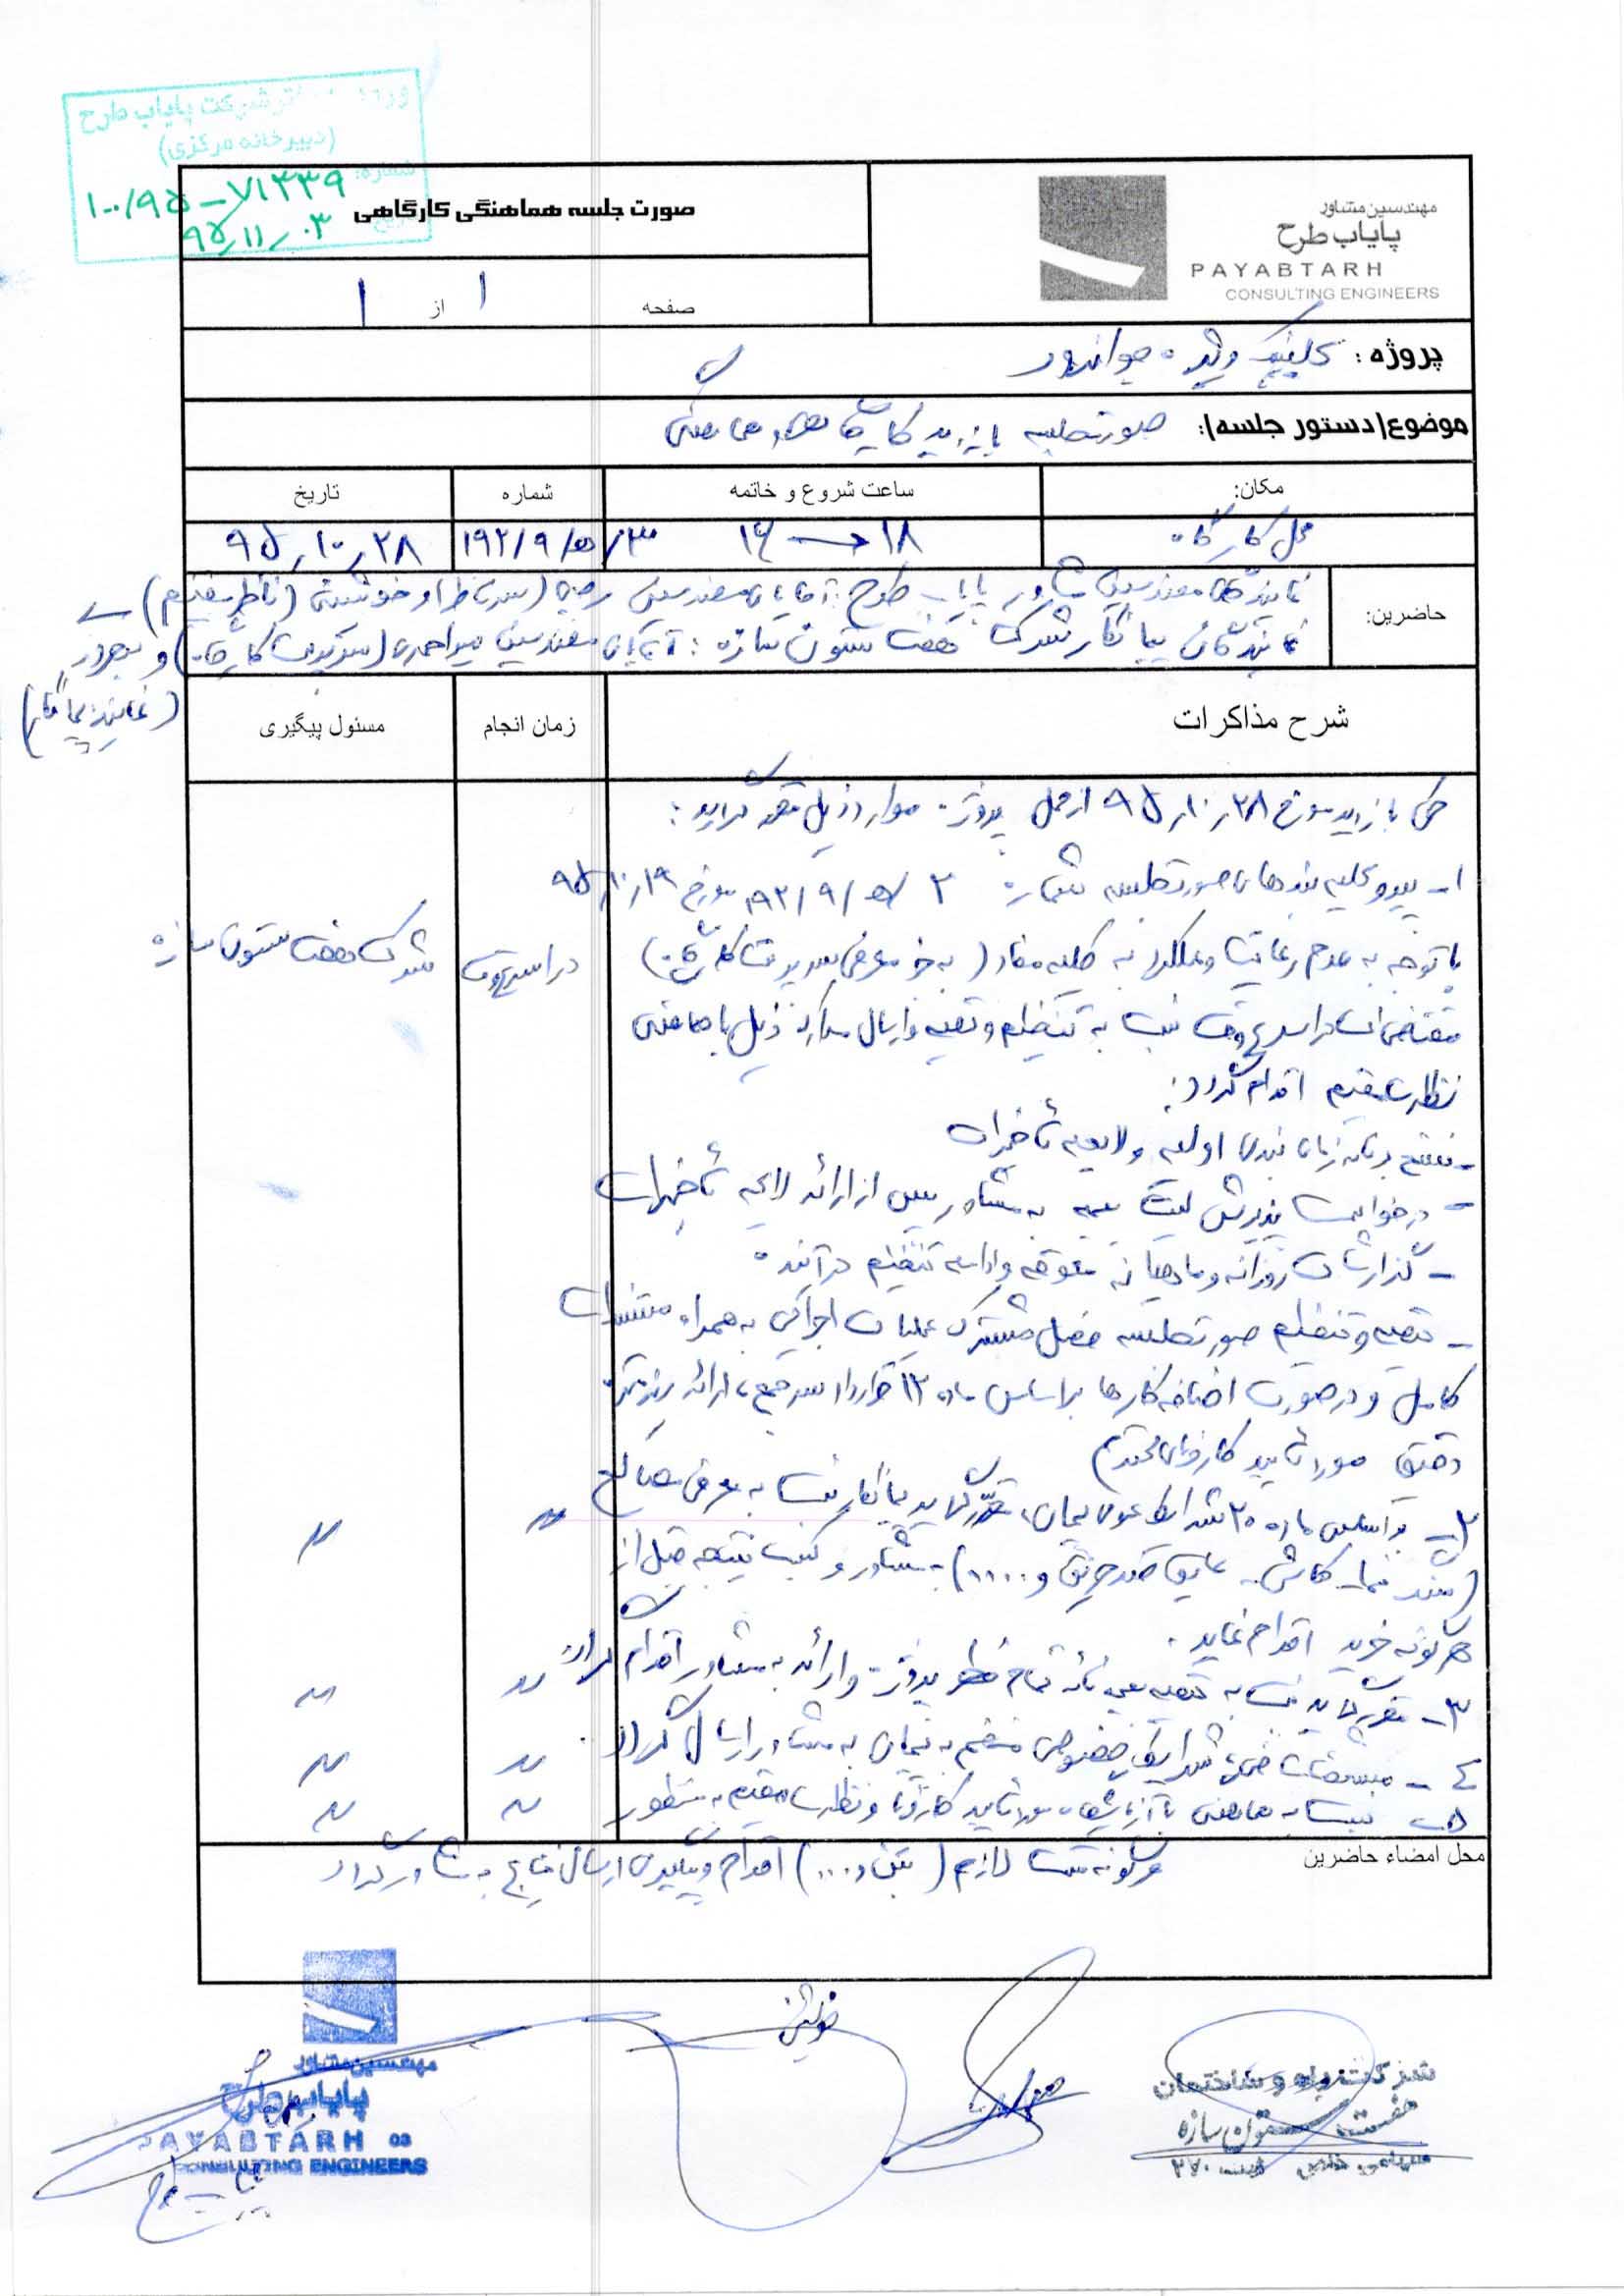 دفتر شرکت پایاب طرح
(دبیرخانه مرکزی)
شماره: ۱۰۰/۹۵-۷۱۳۳۹
۹۵/۱۱/۰۳
صورت جلسه هماهنگی کارگاهی
صفحه ۱ از ۱
مهندسین مشاور
پایاب طرح
PAYABTARH
CONSULTING ENGINEERS
پروژه: کلینیک ویژه جوانرود
موضوع(دستور جلسه): صورتجلسه بازدید کارگاهی و هماهنگی
مکان: ساعت شروع و خاتمه شماره تاریخ
محل کارگاه ۱۸ ۱۶ ۱۹۲/۹/۵/۳۰ ۹۵/۱۰/۲۸
حاضرین: نمایندگان مهندسین مشاور پایاب طرح: آقایان مهندسین (سرناظر) و خوشبین (ناظر مقیم)
نمایندگان پیمانکار شرکت هفت ستون سازه: آقایان مهندسین میراحمدی (سرپرست کارگاه) و بهروز
(نماینده پیمانکار)
شرح مذاکرات زمان انجام مسئول پیگیری
طی بازدید مورخ ۹۵/۱۰/۲۸ از محل پروژه موارد ذیل مقرر گردید:
۱- پیرو کلیه بندهای صورتجلسه شماره ۱۹۲/۹/۵/۲ مورخ ۹۵/۱۰/۱۹
با توجه به عدم رعایت و عملکرد به کلیه مفاد (به جز معرفی سرپرست کارگاه) در اسرع وقت شرکت هفت ستون سازه
مقتضی است در اسرع وقت نسبت به تنظیم و تهیه و ارسال مدارک ذیل با هماهنگی
نظارت مقیم اقدام گردد:
- برنامه زمان بندی اولیه و لایحه تأخیرات
- درخواست پذیرش لیست بیمه به مشاور پس از ارائه لایحه تأخیرات
- گزارشات روزانه و ماهیانه معوقه و ادامه تنظیم در آینده
- تهیه و تنظیم صورتجلسه فصل مشترک عملیات اجرایی به همراه مستندات
کامل و در صورت اضافه کارها براساس ماده ۱۲ قرارداد سرجمع، ارائه ریزمتره
دقیق مورد تأیید کارفرمای محترم
۲- بر اساس ماده ۲۰ شرایط عمومی پیمان، مقرر گردید پیمانکار نسبت به معرفی مصالح 〃 〃
(سنگ نما - کاشی - عایق ضد حریق و ....) به مشاور و کسب نتیجه قبل از
هرگونه خرید اقدام نماید.
۳- مقرر گردید نسبت به تهیه بیمه نامه تمام خطر پروژه و ارائه به مشاور اقدام گردد. 〃 〃
۴- مشخصات فنی، شرایط خصوصی منضم به پیمان به مشاور ارسال گردد. 〃 〃
۵- نسبت به هماهنگی با آزمایشگاه مورد تأیید کارفرما و نظارت مقیم به منظور 〃 〃
هرگونه تست لازم (بتن و ...) اقدام و پیگیری ارسال نتایج به مشاور گردد
محل امضاء حاضرین
خوشبین
مهندسین مشاور
پایاب طرح
PAYABTARH 03
CONSULTING ENGINEERS
شرکت راه و ساختمان
هفت ستون سازه